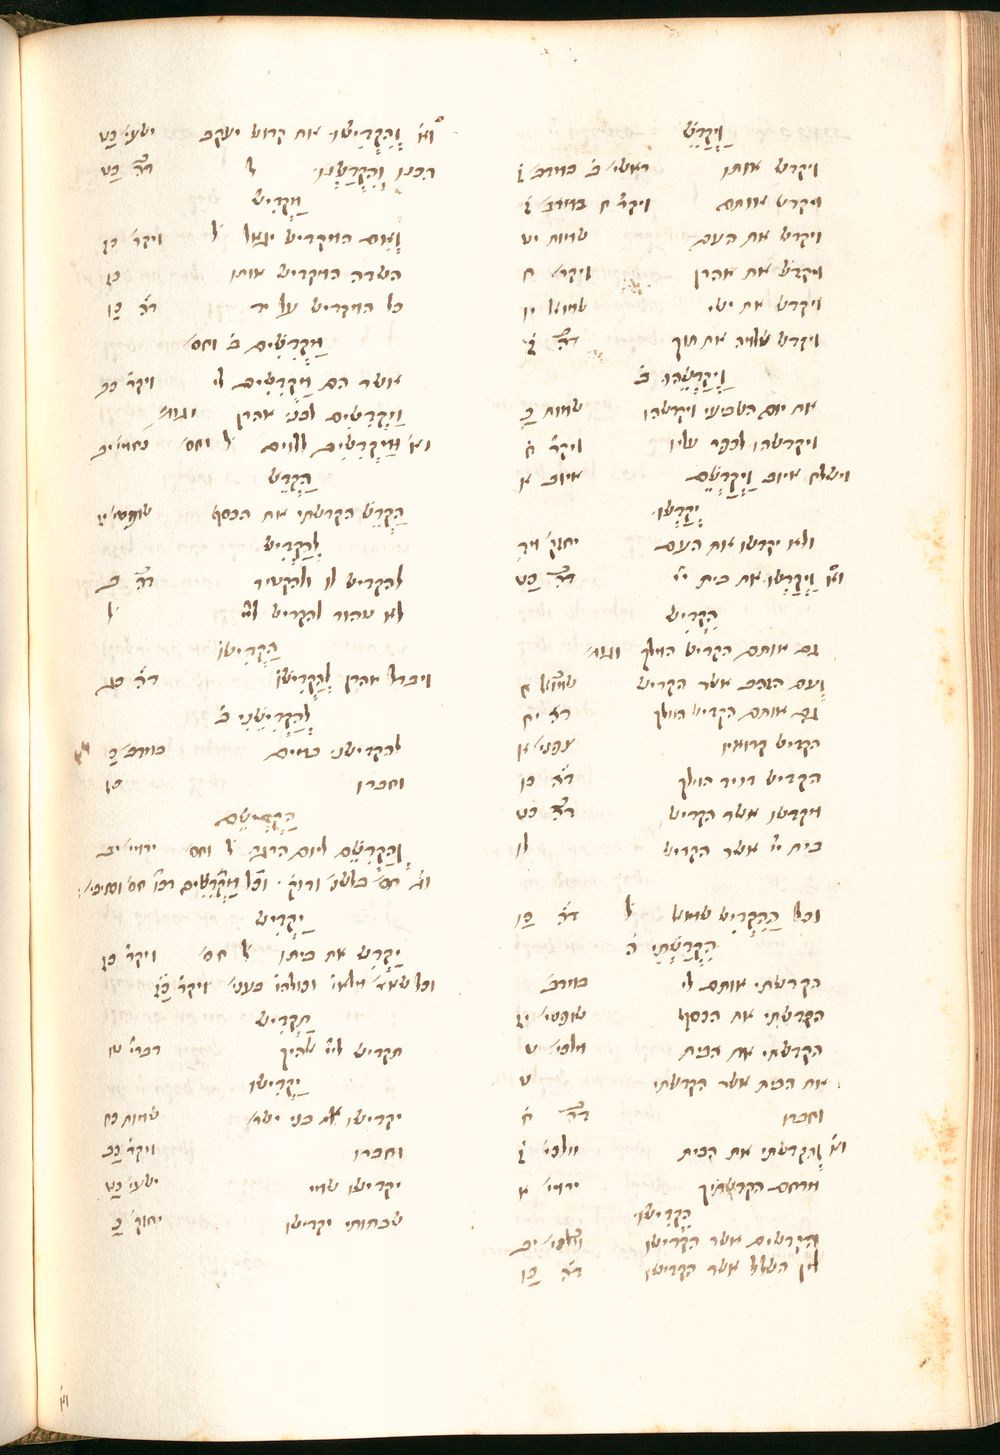 וַיְקַדֵּשׁ
ויקדש אותו ראשי׳ ב במדב׳ ז
ויקדש אותם ויקר׳ ח במדב׳ ז
ויקדש את העם שמות יט
ויקדש את אהרן ויקר׳ ח
ויקדש את ישי שמואל יו
ויקדש שלמה את תוך דה̇ ז
וַיְקַדְּשֵׁהוּ ב
את יום השביעי ויקדשהו שמות כ
ויקדשהו לכפר עליו ויקר׳ ח
וישלח איוב וַיְקַדְּשֵׁם איוב א
יְקַדְּשׁוּ
ולא יקדשו את העם יחזק׳ מד
וא̇ וַיְקַדְּשׁוּ את בית יי׳ דה̇ כט
הִקְדִּישׁ
גם אותם הקדיש המלך
ועם הזהב אשר הקדיש שמואל ח
גם אותם הקדיש המלך דה̇ יח
הקדיש קרואיו צפני׳ א
הקדיש דויד המלך דה̇ כו
מקדשו אשר הקדיש דה̇ כט
בית יי׳ אשר הקדיש לו
וכל הַהִקְדִּישׁ שמואל ל דה̇ כו
הִקְדַּשְׁתִּי ה
הקדשתי אותם לי במדב׳
הקדשתי את הכסף שופטי׳ יז
הקדשתי את הבית מלכי׳ ט
את הבית אשר הקדשתי ט
וחברו דה̇ ח
וא̇ הקדשתי את הבית מלכי׳ ז
מרחם הקדשתיך ירמי׳ א
הִקְדִּישׁוּ
הקדשים אשר הקדישו מלכי׳ יב
מן השלל אשר הקדישו דה̇ כו
וא̇ וְהִקְדִּישׁוּ את קדוש יעקב ישעי׳ כט
הכנו וְהִקְדַּשְׁנוּ ל דה̇ כט
מַקְדִּישׁ
וְאִם המקדיש יגאל ל ויקר׳ כז
השדה המקדיש אותו כז
כל המקדיש על יד דה̇ כו
מַקְדִּישִׁים ב וחס׳
אשר הם מַקְדִּישִׁים לי ויקר׳ כב
מַקְדִּישִׁים לבני אהרן
וא̇ מַקְדִּישִׁים ללוים ל וחס׳ נחמי׳ יב
הַקְדֵּשׁ
הַקְדֵּשׁ הקדשתי את הכסף שופטי׳ יז
לְהַקְדִּישׁ
להקדיש לו ולהקטיר דה̇ ב
לא טהור להקדיש ליי׳ ל
הַקְדִּישׁוֹ
ויבדל אהרן לְהַקְדִּישׁוֹ דה̇ כג
לְהַקְדִּישֵׁנִי ב
להקדישני במים במדב׳ כ
וחברו כז
הַקְדִּישֵׁם
וְהַקְדִּשֵׁם ליום הריגה ל וחס׳ ירמי׳ יב
יַקְדִּישׁ
יַקְדִּשׁ את ביתו ל חס׳ ויקר׳ כז
תַּקְדִּישׁ
תקדיש ליי׳ אלהיך דברי׳ טו
יַקְדִּישׁוּ
יקדישו בני ישר׳ שמות כח
וחברו ויקר׳ כב
יקדישו שמי ישעי׳ כט
שבתותי יקדישו יחזק׳ כ